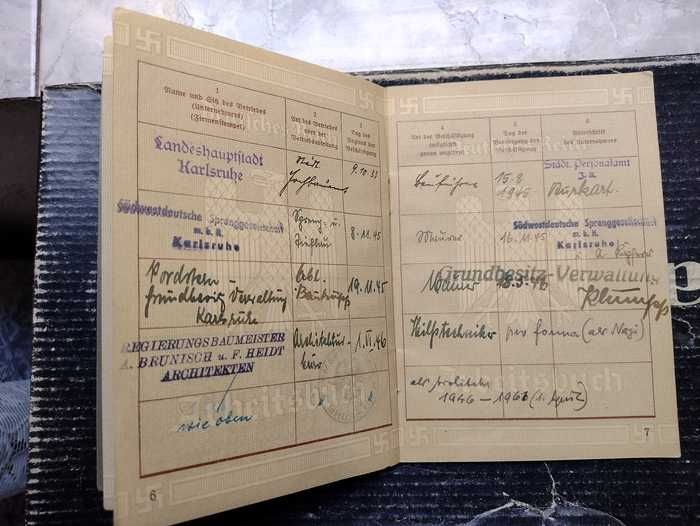 1
Name und Sitz des Betriebes
(Unternehmers)
(Firmenstempel)
2
Art des Betriebes
oder der
Betriebsabteilung
3
Tag
des
Beginns der
Beschäftigung
Landeshauptstadt
Karlsruhe
Städt.
Hochbauamt
9.10.33
Südwestdeutsche Sprenggesellschaft
m. b. H.
Karlsruhe
Spreng- u.
8.11.45
Grundbesitz Verwaltung
Karlsruhe
Abt.
19.11.45
REGIERUNGSBAUMEISTER
A. BRUNISCH u. F. HEIDT
ARCHITEKTEN
Architektur-
büro
1.VI.46
wie oben
Arbeitsbuch
6
4
Art der Beschäftigung
(möglichst
genau angeben)
5
Tag der
Beendigung der
Beschäftigung
6
Unterschrift
des Unternehmers
Deutsches Reich
Bauführer
15.8.
1945
Städt. Personalamt
J.A.
Burkart.
16.11.45
Südwestdeutsche Sprenggesellschaft
m. b. H.
Karlsruhe
Maurer
46
Grundbesitz-Verwaltung
Hilfstechniker pro forma (als Nazi)
als Architekt
1946 – 1966 (1. April)
Arbeitsbuch
7